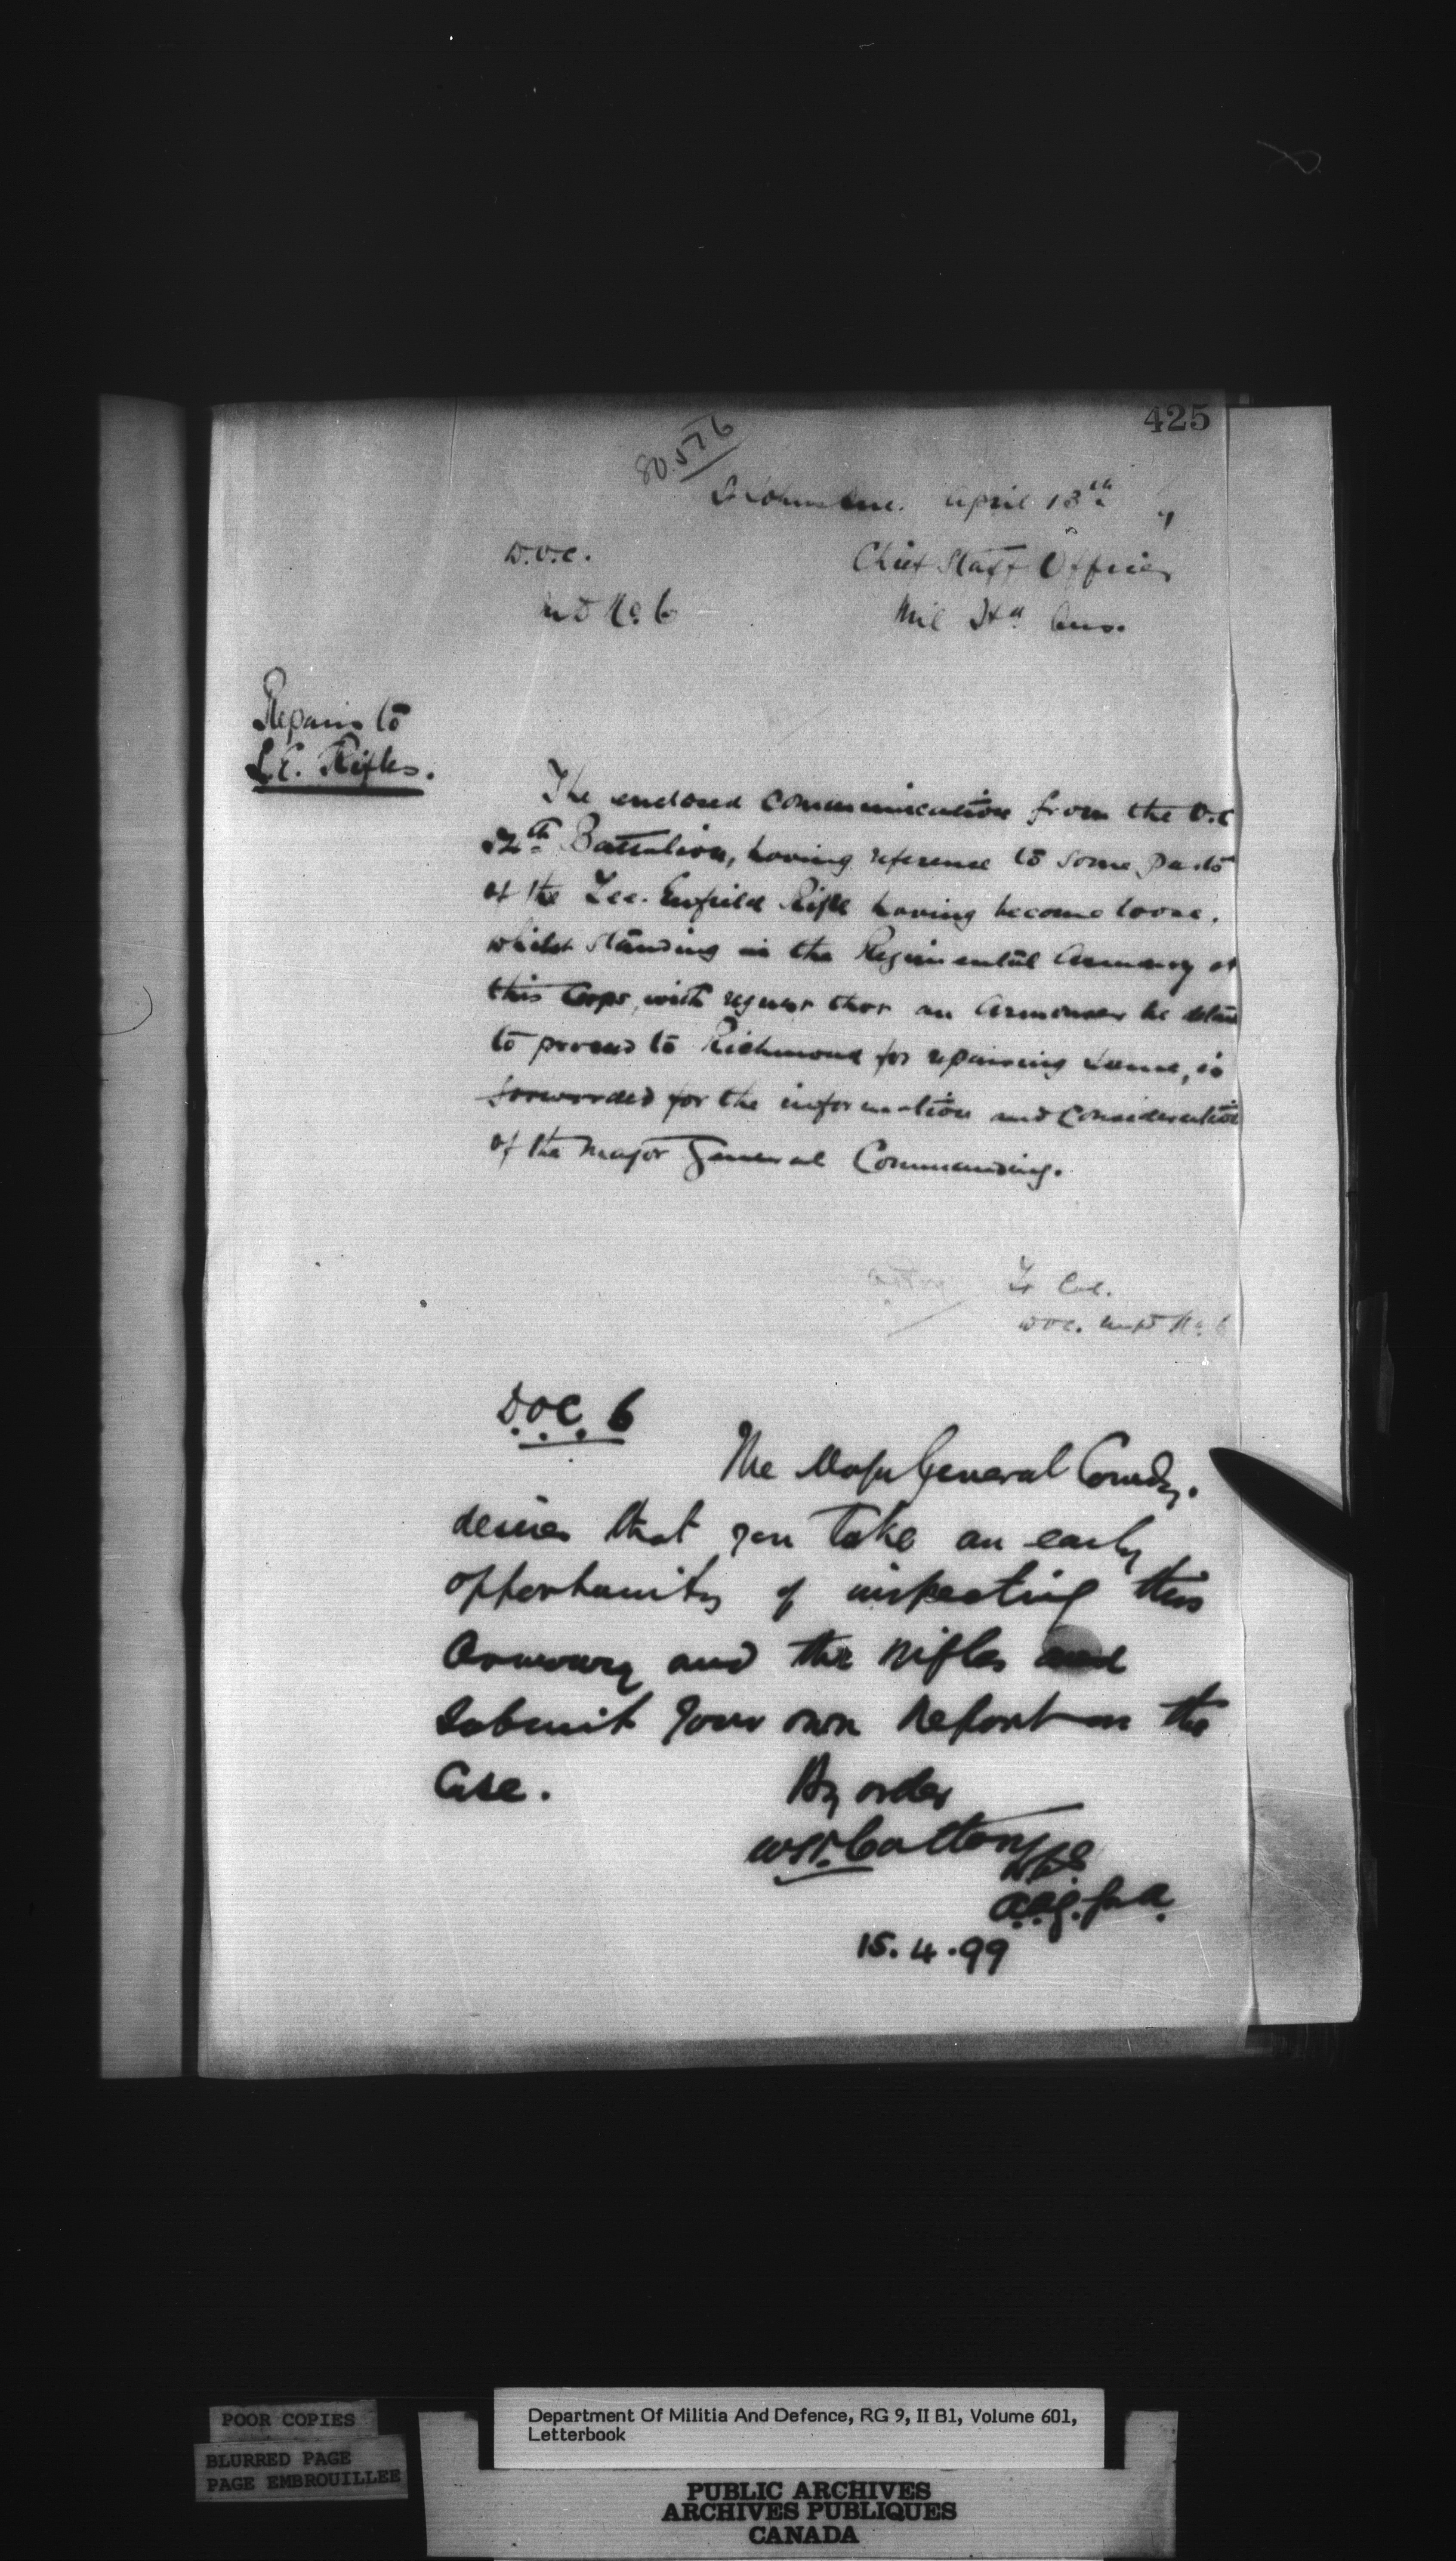 425
80576
St Johns Que. April 13th
D.O.C. Chief Staff Officer
M D No. 6 Mil Hd Qrs.
Repairs to
L.E. Rifles.
The enclosed communication from the O.C
Battalion, having reference to some parts
of the Lee-Enfield Rifle having become loose,
whilst standing in the Regimental Armoury of
this Corps, with request that an Armourer be
to proceed to Richmond for repairing same, is
forwarded for the information and consideration
of the Major General Commanding.
Lt Col.
DOC. No. 6
D.O.C. 6
The Major General Comdg.
desires that you take an early
opportunity of inspecting this
Armoury and the Rifles and
submit your own report on the
Case. By order
Cotton
15.4.99
POOR COPIES
BLURRED PAGE
PAGE EMBROUILLEE
Department Of Militia And Defence, RG 9, II B1, Volume 601,
Letterbook
PUBLIC ARCHIVES
ARCHIVES PUBLIQUES
CANADA